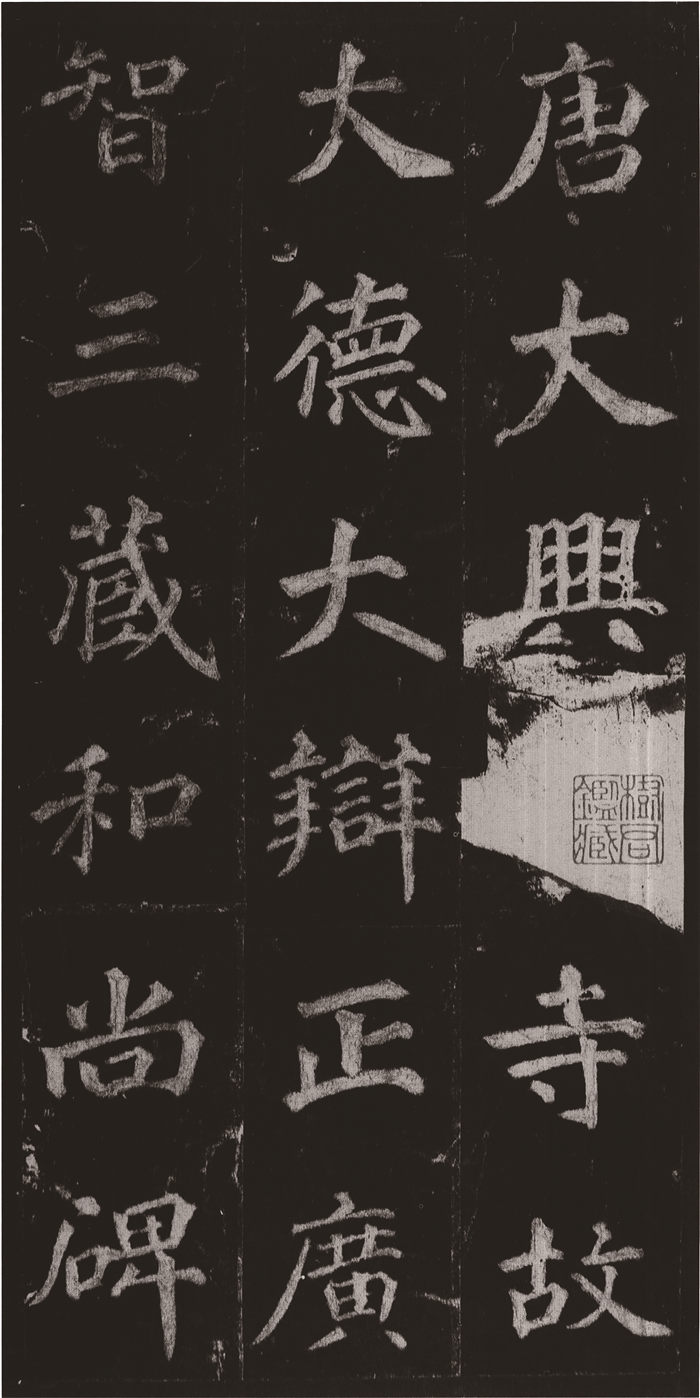 唐大興寺故
大德大辯正廣
智三藏和尚碑
樹
鑑藏